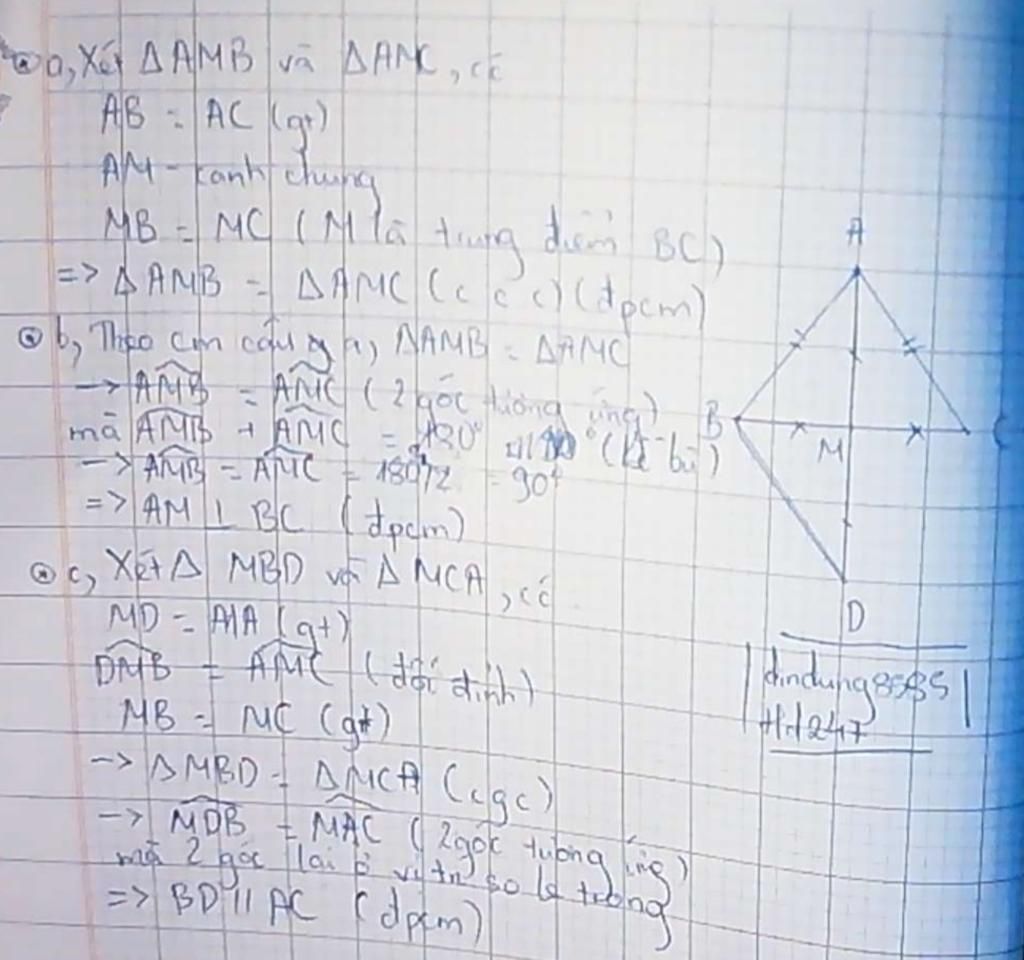 a, Xét ΔAMB và ΔAMC, có
AB = AC (gt)
AM - cạnh chung
MB = MC ( M là trung điểm BC)
=> ΔAMB = ΔAMC (c c c) (đpcm)
b, Theo cm câu a), ΔAMB = ΔAMC
-> AMB = AMC ( 2 góc tương ứng)
mà AMB + AMC = 180° (kề bù)
-> AMB = AMC = 180°/2 = 90°
=> AM ⊥ BC (đpcm)
c, Xét Δ MBD và Δ MCA, có
MD = MA (gt)
DMB = AMC (đối đỉnh)
MB = MC (gt)
-> ΔMBD = ΔMCA (cgc)
-> MDB = MAC ( 2 góc tương ứng)
mà 2 góc lại ở vị trí so le trong
=> BD // AC (đpcm)
A
B
M
C
D
dindung8585
Hd247